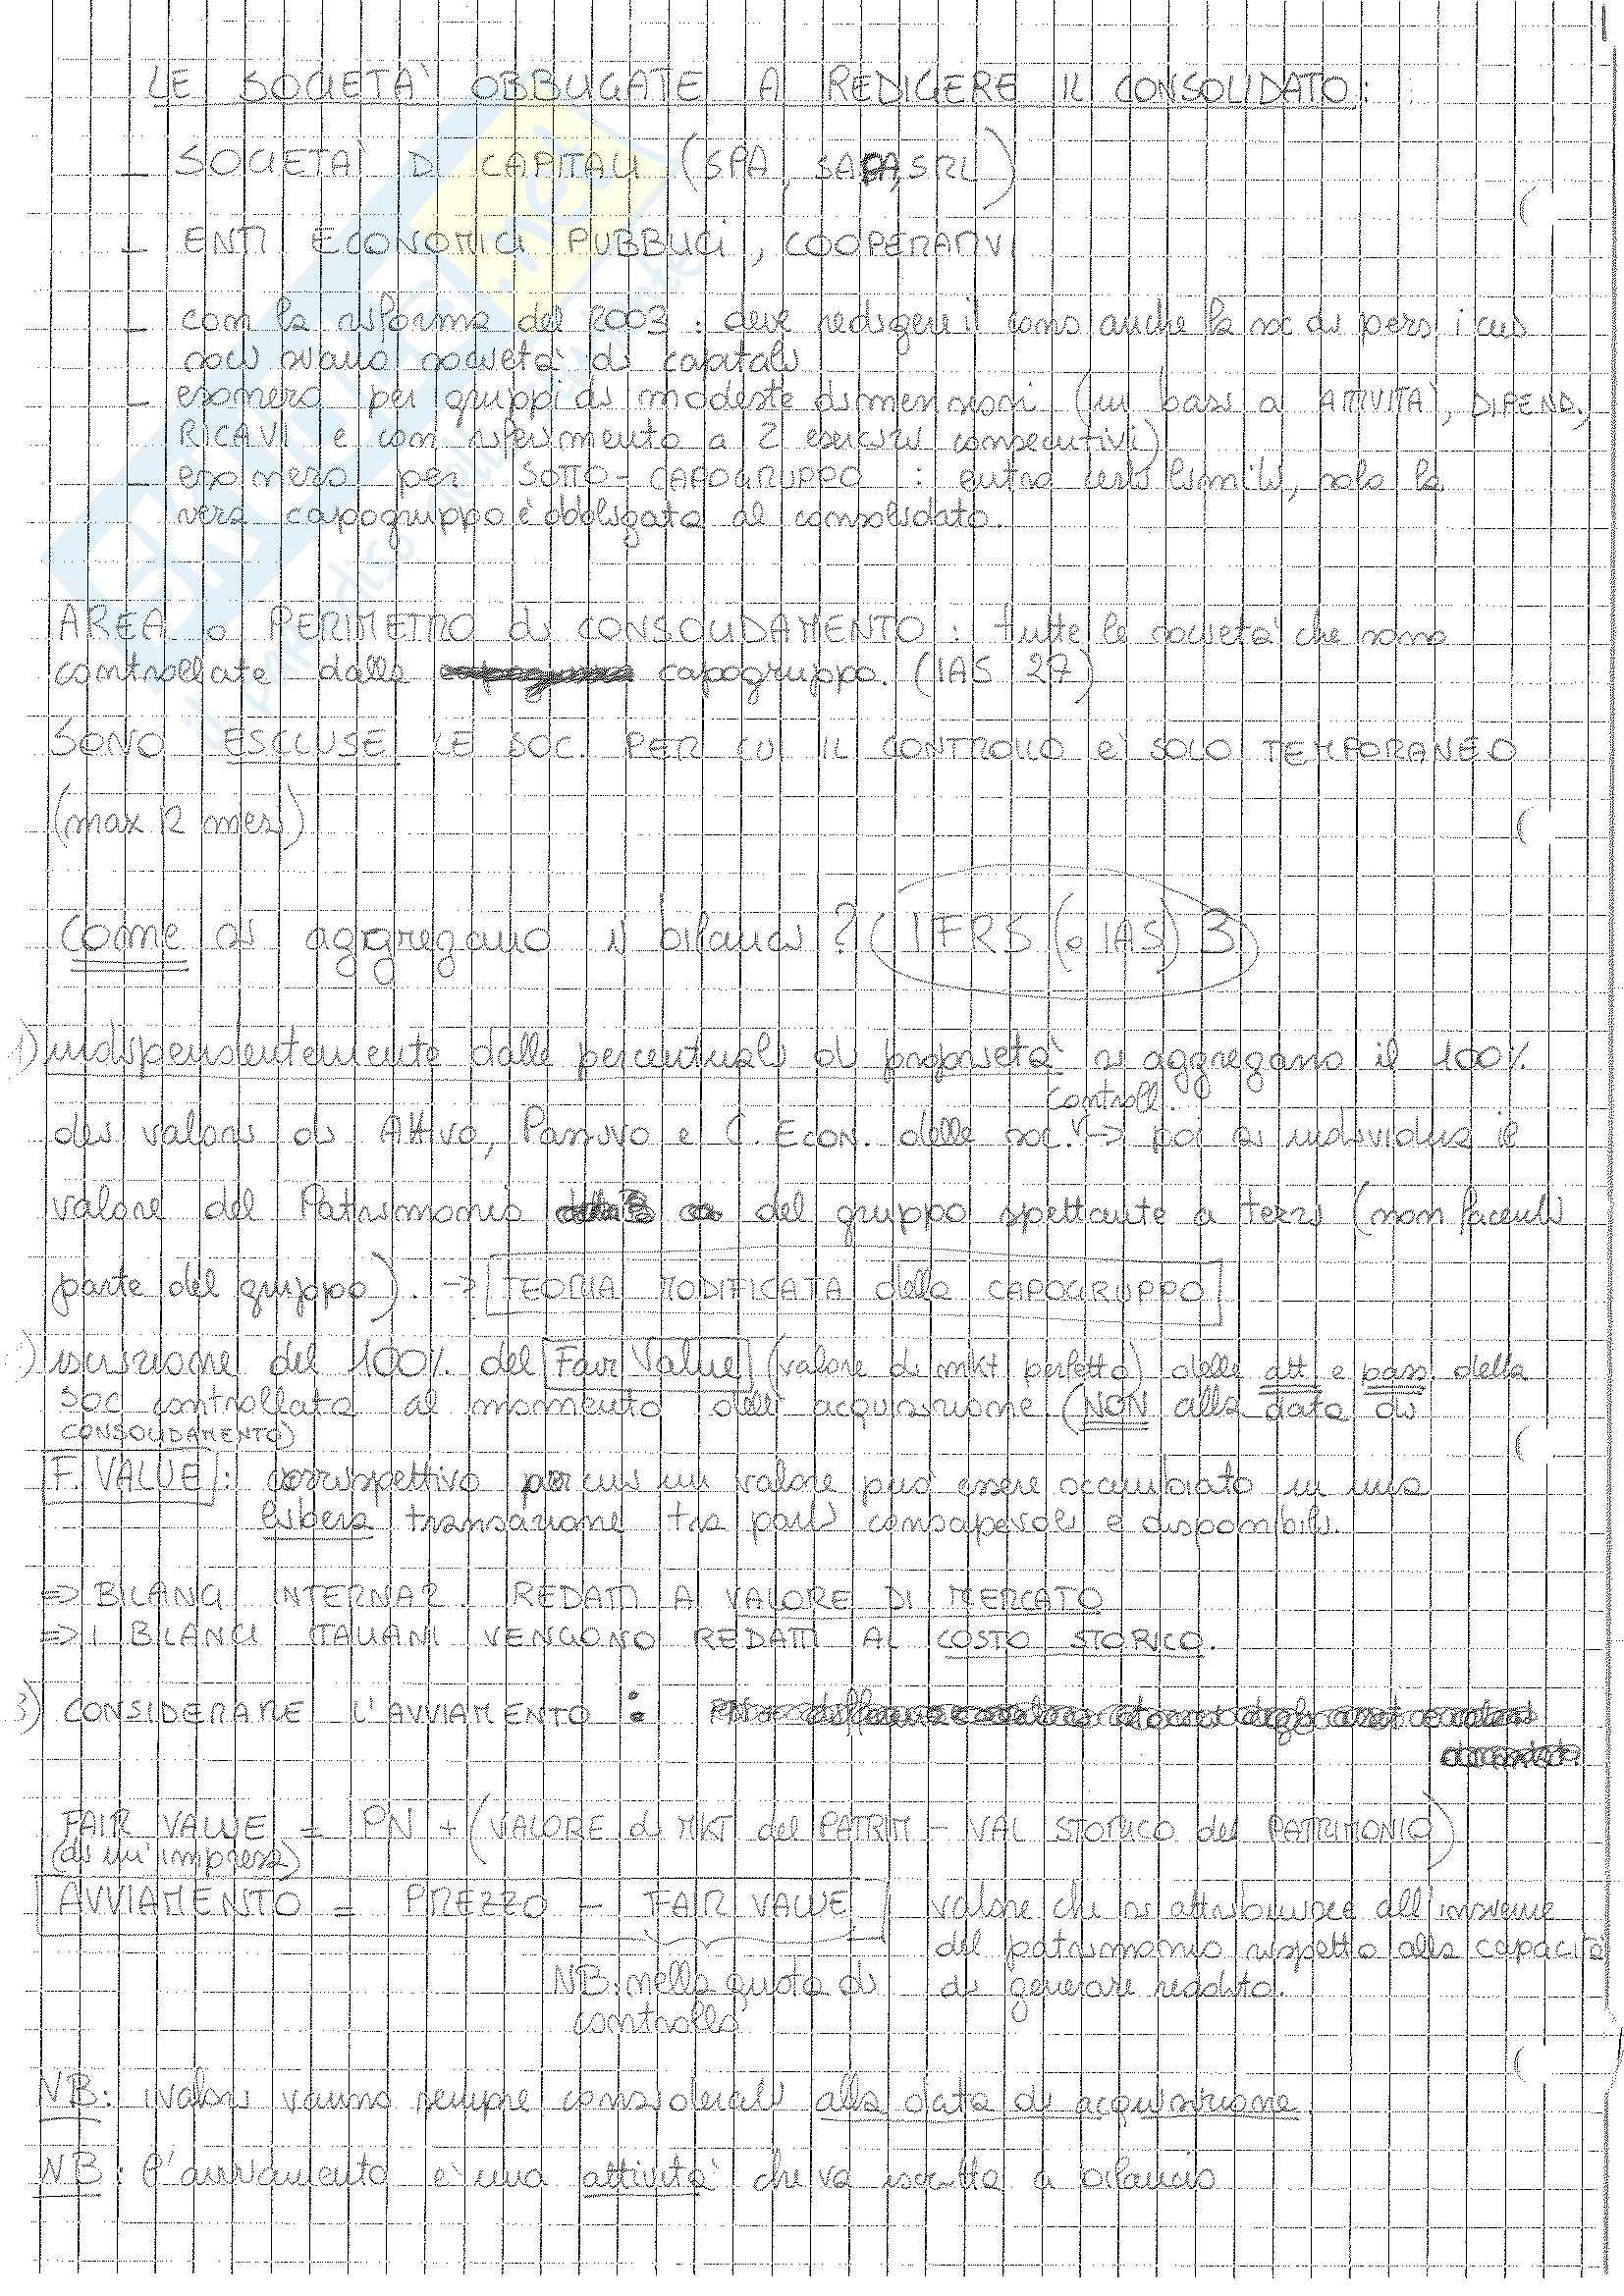 LE SOCIETA' OBBLIGATE A REDIGERE IL CONSOLIDATO:
- SOCIETA' DI CAPITALI (SPA, SAPA, SRL)
- ENTI ECONOMICI PUBBLICI, COOPERATIVI
- con la riforma del 2003 : deve redigere il cons anche la soc di pers i cui
soci siano società di capitali
- esonero per gruppi di modeste dimensioni (in basi a ATTIVITA', DIPEND.,
RICAVI e con riferimento a 2 esercizi consecutivi)
- esonero per SOTTO-CAPOGRUPPO : entro certi limiti, solo la
vera capogruppo è obbligata al consolidato.
AREA o PERIMETRO di CONSOLIDAMENTO : tutte le società che sono
controllate dalla capogruppo. (IAS 27)
SONO ESCLUSE LE SOC. PER CUI IL CONTROLLO è SOLO TEMPORANEO
(max 12 mesi)
Come si aggregano i bilanci ? (IFRS (o IAS) 3)
1) indipendentemente dalle percentuali di proprietà si aggregano il 100%
controll.
dei valori di Attivo, Passivo e C. Econ. delle soc. → poi si individua il
valore del Patrimonio del gruppo spettante a terzi (non facenti
parte del gruppo). → TEORIA MODIFICATA della CAPOGRUPPO
) iscrizione del 100% del Fair Value (valore di mkt perfetto) delle att e pass della
soc controllata al momento dell' acquisizione (NON alla data di
CONSOLIDAMENTO)
F. VALUE : corrispettivo per cui un valore può essere scambiato in una
libera transazione tra parti consapevoli e disponibili.
=> BILANCI INTERNAZ. REDATTI A VALORE DI MERCATO
=> I BILANCI ITALIANI VENGONO REDATTI AL COSTO STORICO.
3) CONSIDERARE L'AVVIAMENTO :
FAIR VALUE = PN + (VALORE di MKT del PATRIM - VAL STORICO del PATRIMONIO)
(di un'impresa)
AVVIAMENTO = PREZZO - FAIR VALUE valore che si attribuisce all'insieme
del patrimonio rispetto alla capacità
NB: nella quota di di generare reddito.
controllo
NB: i valori vanno sempre considerati alla data di acquisizione
NB: l'avviamento è una attività che va iscritta a bilancio